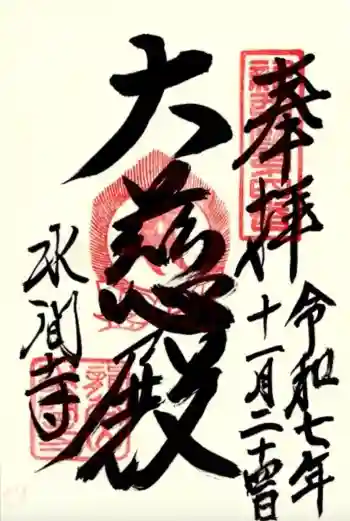 奉拝
令和七年
十一月二十四日
大慈殿
水间寺